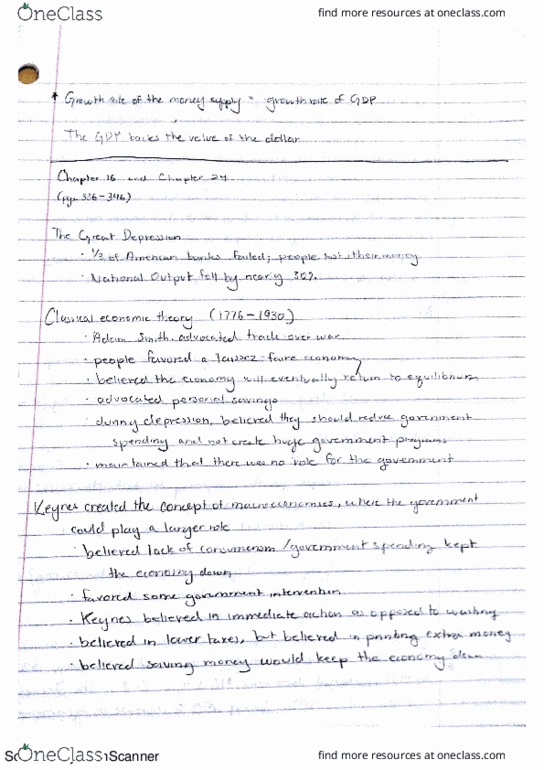 OneClass
find more resources at oneclass.com
* Growth rate of the money supply = growth rate of GDP
The GDP backs the value of the dollar
Chapter 16 and Chapter 24
(pp. 336-346)
The Great Depression
· 1/3 of American banks failed; people lost their money
· National Output fell by nearly 30%.
Classical economic theory (1776-1930)
· Adam Smith advocated trade over war
· people favored a laissez-faire economy
· believed the economy will eventually return to equilibrium
· advocated personal savings
· during depression, believed they should reduce government
spending and not create huge government programs
· maintained that there was no role for the government
Keynes created the concept of macroeconomics, where the government
could play a larger role
· believed lack of consumerism/government spending kept
the economy down
· favored some government intervention
· Keynes believed in immediate action as opposed to waiting
· believed in lower taxes, but believed in printing extra money
· believed saving money would keep the economy down
OneClass
Scanner
find more resources at oneclass.com